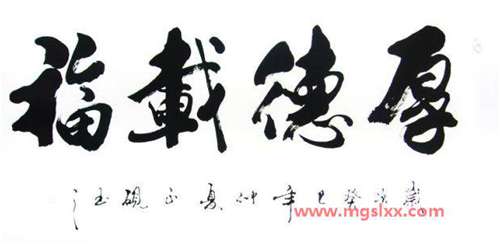 厚德載福
歲次癸巳年仲夏正硯
www.mgslxx.com